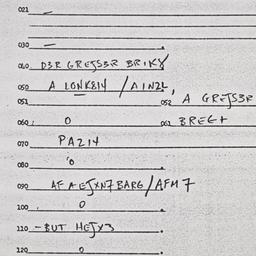 021 —
030 —
040 D3R GREJS3R BRIK8
050 A LONK814 / A 1N2L,
051
052 A GREJS3R
060. 0
061 3REG+
070 PA214
080 0
090 AF AEJXN7 BARG/AFM7
100 0
110 - BUT HEJX3
120 0